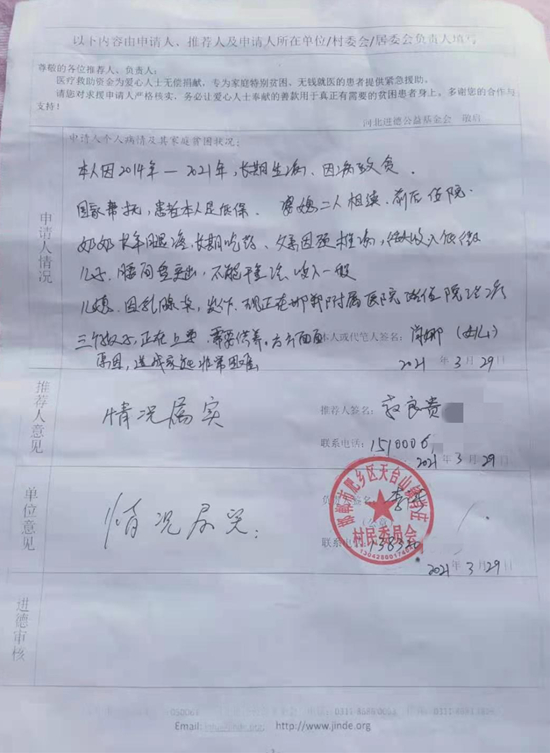 以下内容由申请人、推荐人及申请人所在单位/村委会/居委会负责人填写
尊敬的各位推荐人、负责人：
医疗救助资金为爱心人士无偿捐献，专为家庭特别贫困、无钱就医的患者提供紧急援助。
请您对求援申请人严格核实，务必让爱心人士奉献的善款用于真正有需要的贫困患者身上。多谢您的合作与
支持！
河北进德公益基金会 敬启
申请人情况
申请人个人病情及其家庭贫困状况：
本人因2014年—2021年，长期生病，因病致贫
国家帮扶，患者本人是低保． 婆媳二人相继、前后住院．
奶奶 长期吃药、父亲因颈椎病，收入低微
儿子，腰间盘突出，不能干重活 收入一般
儿媳，因乳腺 ，现正在邯郸附属医院 住院治疗
三个孩子，正在上学，需要供养。
本人或代笔人签名：
原因，造成家庭非常困难
2021 年 3 月 29 日
推荐人意见
情况属实
推荐人签名： 良贵
联系电话：1510006
2021 年 3 月 29 日
单位意见
情况属实；
负 签名：李
邯郸市肥乡区天台山镇 庄
村民委员会
联系电
2021 年 3 月 29 日
进德审核
Email: http://www.jinde.org